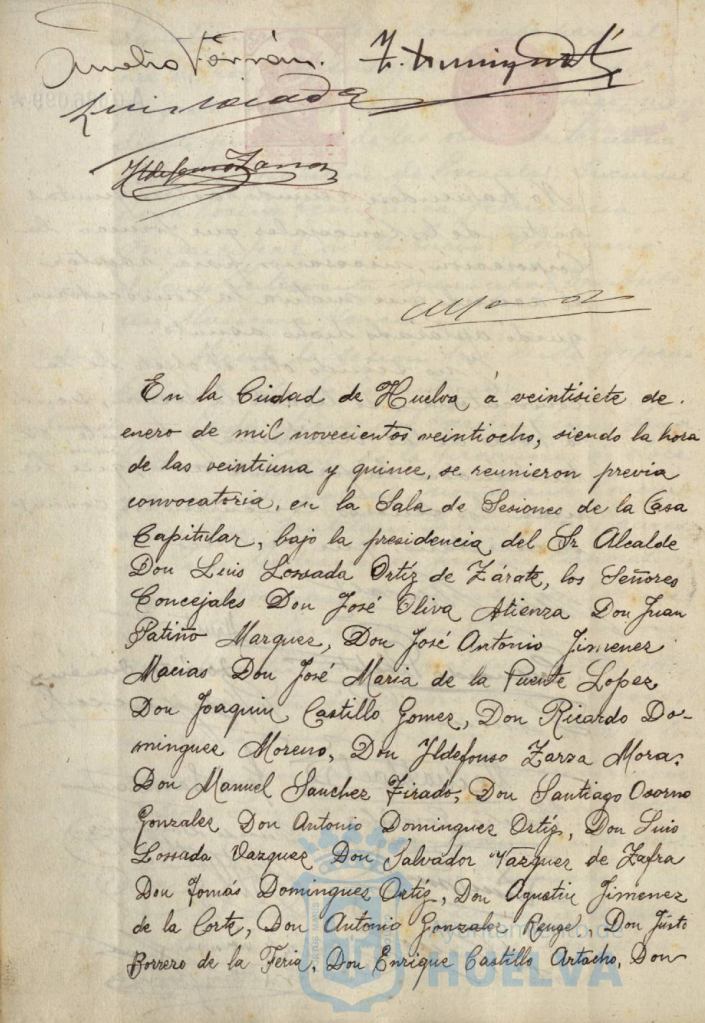 Aurelio Terrán. T. Dominguez
Luis Losada
Ildefonso Zarza
En la Ciudad de Huelva á veintisiete de
enero de mil novecientos veintiocho, siendo la hora
de las veintiuna y quince, se reunieron previa
convocatoria, en la Sala de Sesiones de la Casa
Capitular, bajo la presidencia del Sr Alcalde
Don Luis Lossada Ortíz de Zárate, los Señores
Concejales Don José Oliva Atienza Don Juan
Patiño Marquez, Don José Antonio Jimenez
Macias Don José Maria de la Puente Lopez
Don Joaquin Castillo Gomez, Don Ricardo Do-
minguez Moreno, Don Ildefonso Zarza Mora,
Don Manuel Sanchez Tirado, Don Santiago Osorno
Gonzalez Don Antonio Dominguez Ortíz, Don Luis
Lossada Vazquez Don Salvador Vazquez de Zafra
Don Tomás Dominguez Ortíz, Don Agustin Jimenez
de la Corte, Don Antonio Gonzalez Don Justo
Borrero de la Feria, Don Enrique Castillo Artacho, Don
Ayuntamiento de
HUELVA